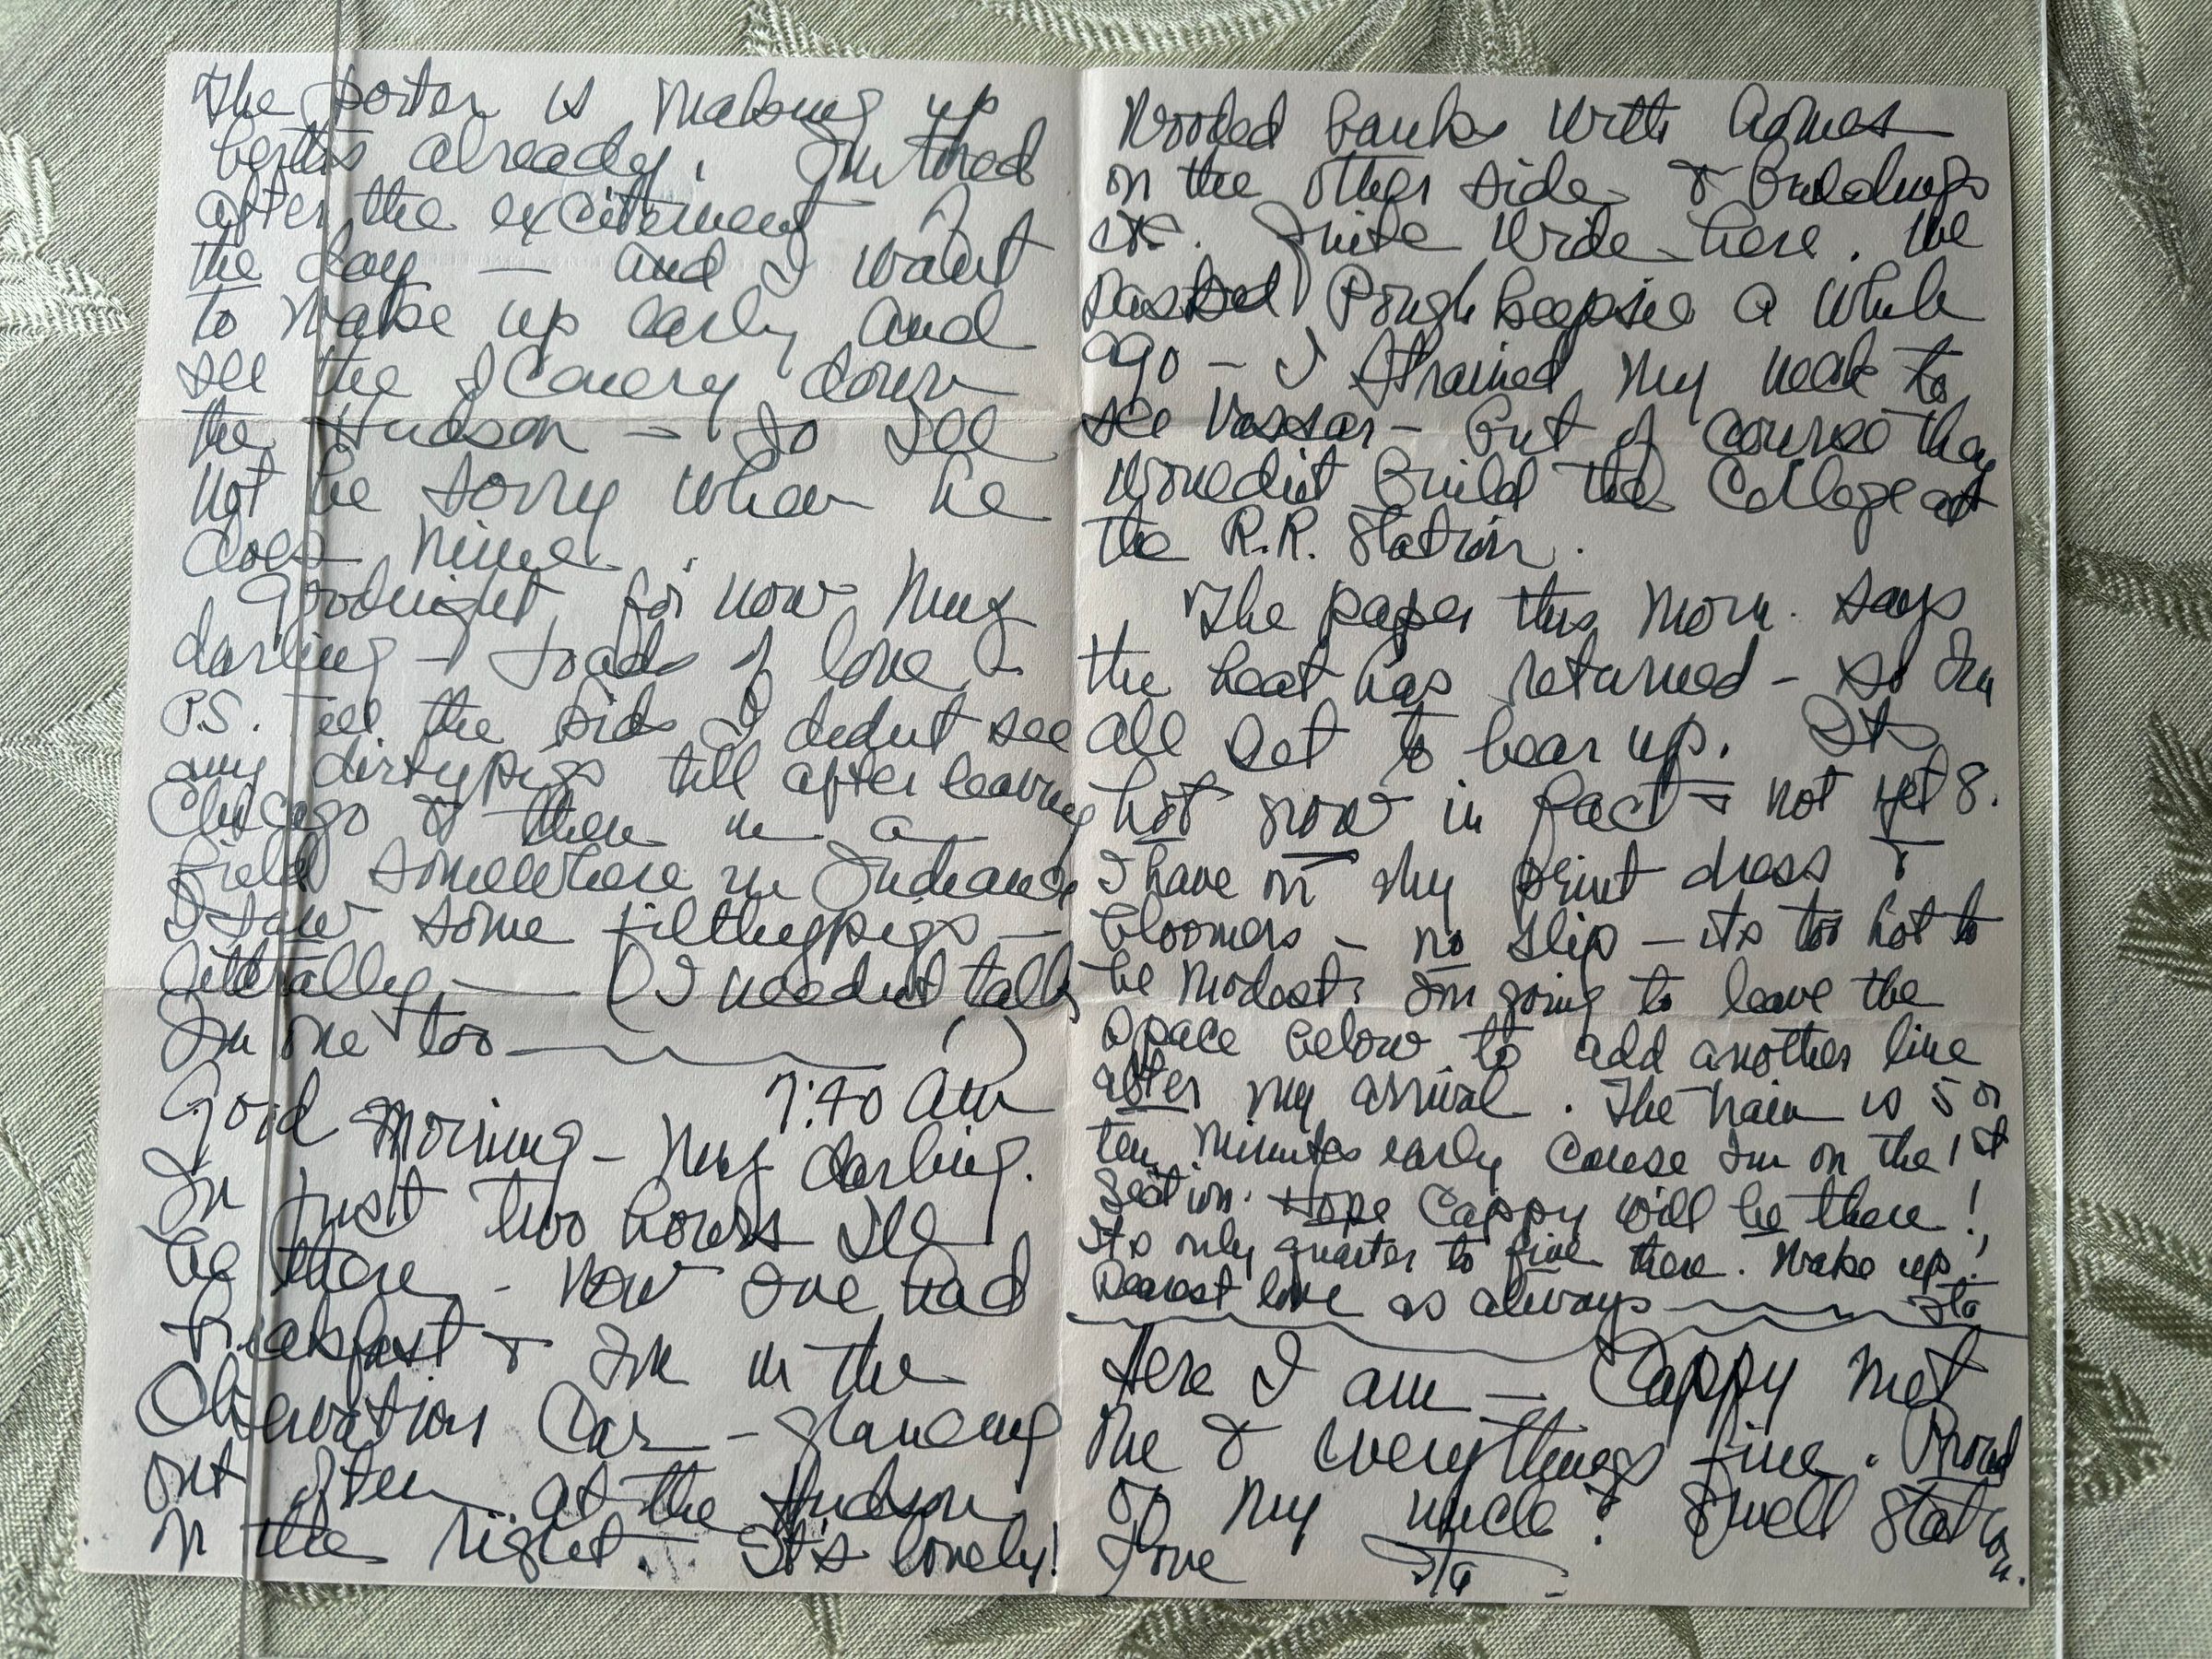 The porter is making up
berths already. I'm tired
after the excitement of
the day — and I want
to wake up early and
see the scenery down
the Hudson — So I'll
not be sorry when he
does mine.
Goodnight for now my
darling — Loads of love
P.S. Tell the kids I didnt see
any dirty pigs till after leaving
Chicago & then in a
field somewhere in Indiana
I saw some filthy pigs —
litterally — (I needn't talk
I'm one too )
7:40 am
Good Morning — my darling.
In just two hours I'll
be there. Now I've had
Breakfast & I'm in the
Observation Car — glancing
out often at the Hudson
on the right. It's lovely!
Wooded banks with homes
on the other side & buildings
etc. Quite wide here. We
passed Poughkeepsie a while
ago — I strained my neck to
see Vassar — but of course they
wouldnt build the College at
the R.R. Station.
The paper this morn. says
the heat has returned — so I'm
all set to bear up. Its
hot now in fact — not yet 8.
I have on my print dress &
bloomers — no slip — its too hot to
be modest. I'm going to leave the
space below to add another line
after my arrival. The train is 5 or
ten minutes early cause I'm on the 1st
Section. Hope Cappy will be there!
Its only quarter to five there. Wake up!
Dearest love as always
Here I am — Cappy met
me & everythings fine. Proud
of my uncle? Swell station.
Love